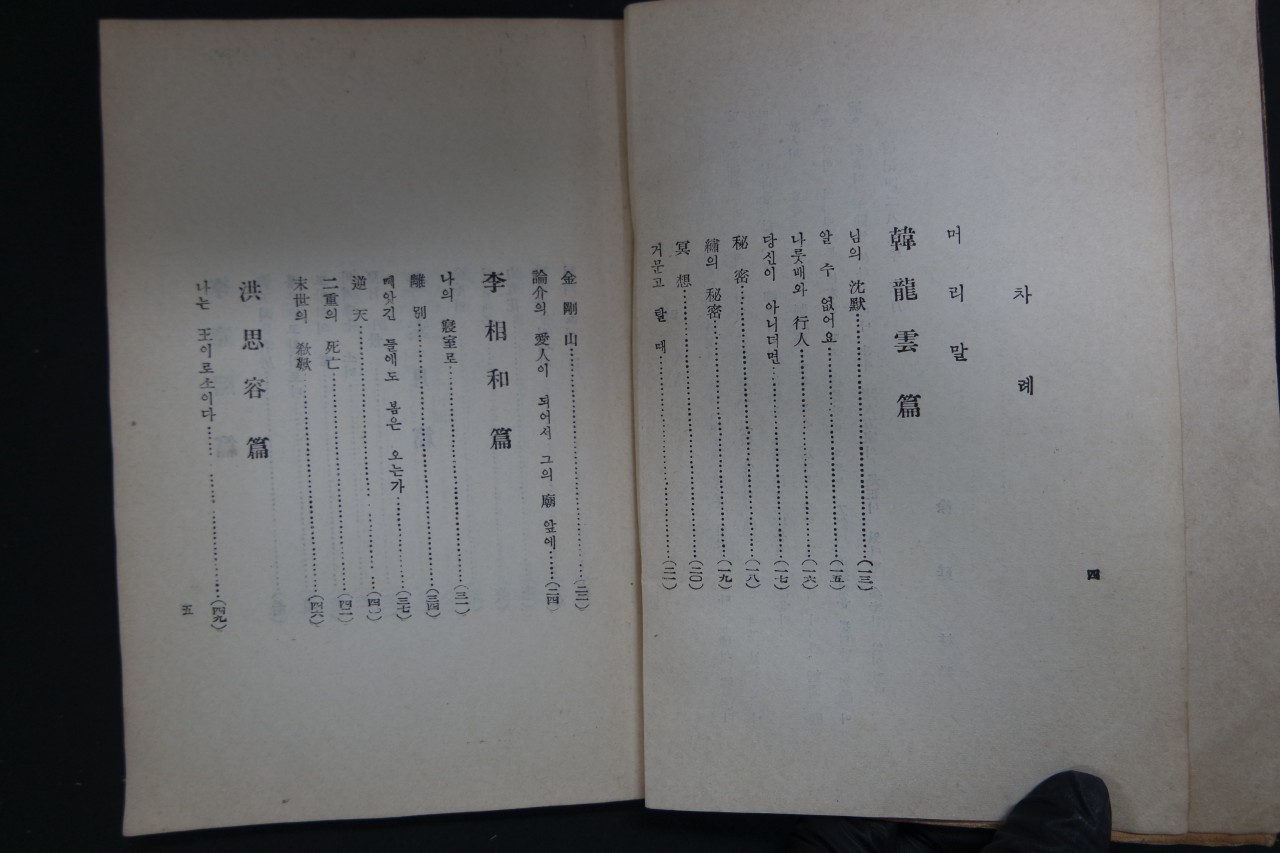 차례
머리말
韓龍雲篇
님의 沈默……(一三)
알 수 없어요……(一五)
나룻배와 行人……(一六)
당신이 아니더면……(一七)
秘密……(一八)
繡의 秘密……(一九)
冥想……(二〇)
거문고 탈 때……(二一)
四
金剛山……(二二)
論介의 愛人이 되어서 그의 廟 앞에……(二四)
李相和篇
나의 寢室로……(三一)
離別……(三四)
빼앗긴 들에도 봄은 오는가……(三七)
逆天……(四一)
二重의 死亡……(四二)
末世의 欷歎……(四六)
洪思容篇
나는 王이로소이다……(四九)
五